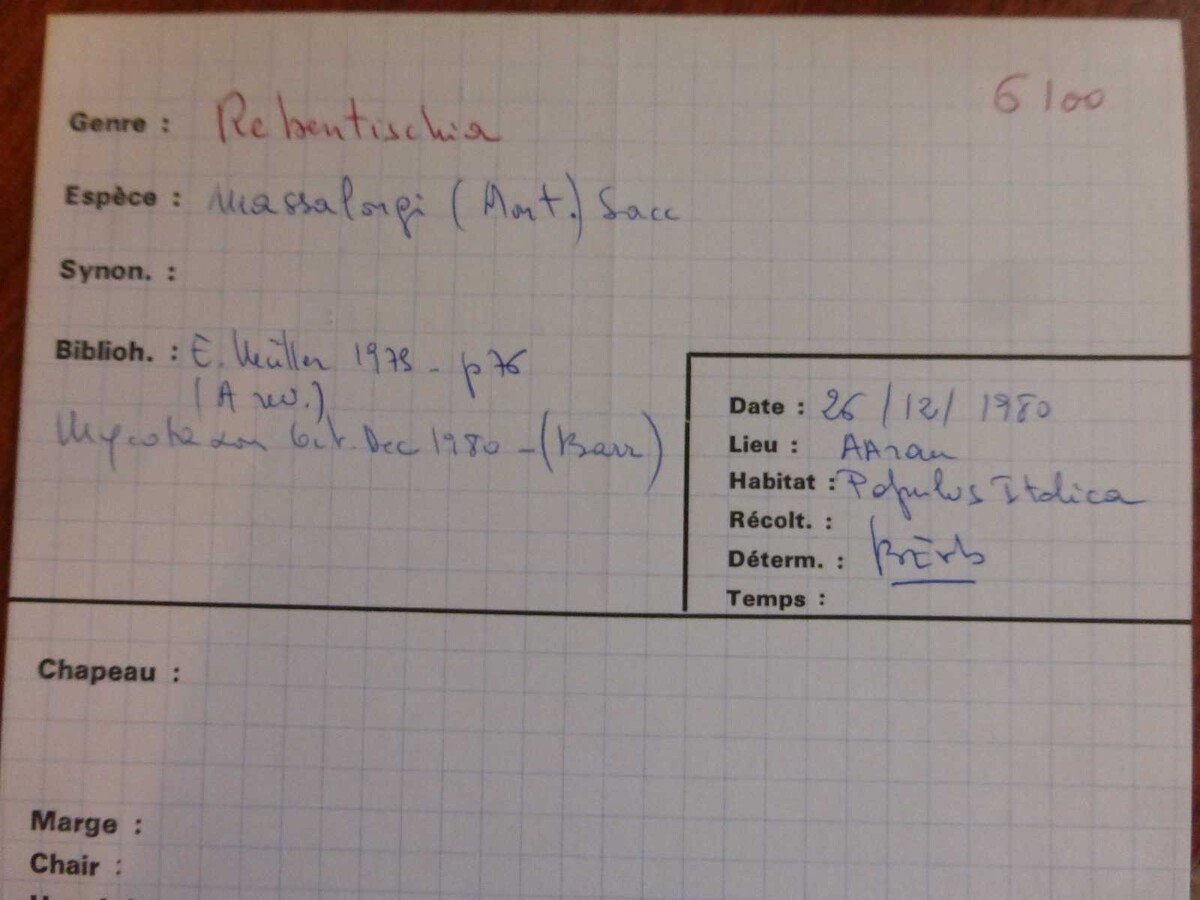 6100
Genre : Rebentischia
Espèce : massalongi (Mont.) Sacc
Synon. :
Biblioh. : E. Müller 1979 - p 76
(A rev.)
Mycotaxon Oct. Dec 1980 - (Barr)
Date : 26 / 12 / 1980
Lieu :
Habitat : Populus Italica
Récolt. :
Déterm. :
Temps :
Chapeau :
Marge :
Chair :